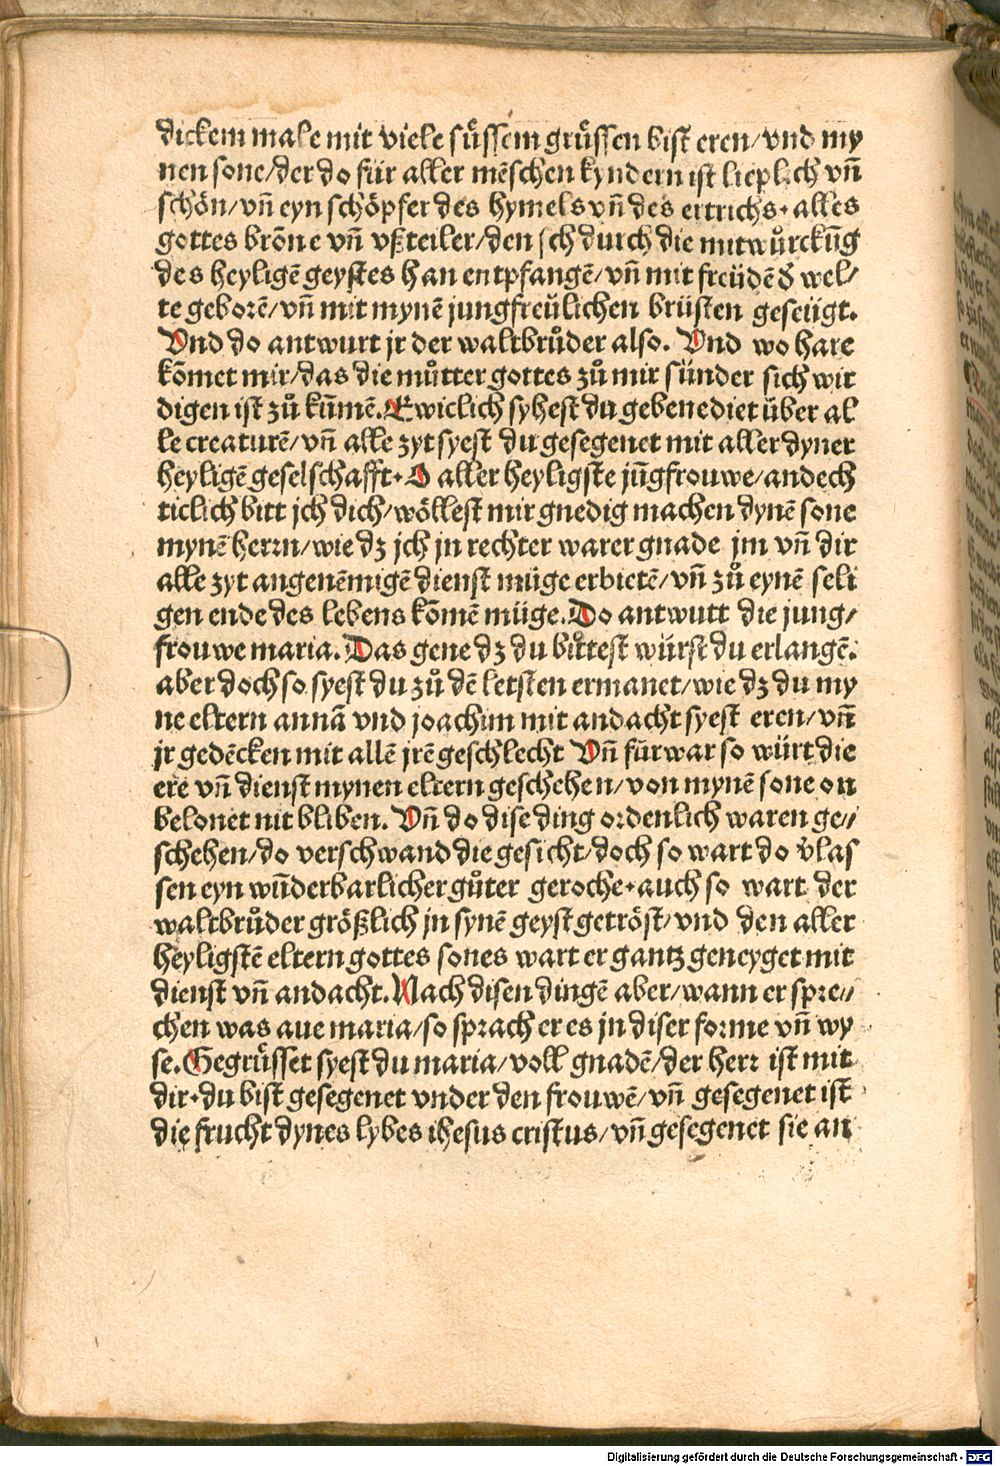 dickem male mit viele süssem grüssen bist eren/vnd my
nen sone/der do für aller mēschen kyndern ist lieplich vn̄
schön/vn̄ eyn schöpfer des hymels vn̄ des ertrichs. alles
gottes brōne vn̄ vßteiler/den jch durch die mitwůrckūg
des heyligē geystes han entpfangē/vn̄ mit freüdē d̕ wel/
te geborē/vn̄ mit mynē jungfreülichen brüsten geseügt.
Vnd do antwurt jr der waltbrůder also. Vnd wo hare
kōmet mir/das die můtter gottes zů mir sünder sich wir
digen ist zů kūmē. Ewiclich syhest du gebenediet über al
le creaturē/vn̄ alle zyt syest du gesegenet mit aller dyner
heyligē geselschafft. O aller heyligste jūgfrouwe/andech
ticlich bitt jch dich/wöllest mir gnedig machen dynē sone
mynē herrn/wie dz jch jn rechter warer gnade jm vn̄ dir
alle zyt angenēmigē dienst müge erbietē/vn̄ zů eynē seli
gen ende des lebens kōmē müge. Do antwurt die jung/
frouwe maria. Das gene dz du bittest würst du erlangē.
aber doch so syest du zů dē letsten ermanet/wie dz du my
ne eltern annā vnd joachim mit andacht syest eren/vn̄
jr gedēcken mit allē jrē geschlecht Vn̄ fürwar so würt die
ere vn̄ dienst mynen eltern geschehen/von mynē sone on
belonet nit bliben. Vn̄ do dise ding ordenlich waren ge//
schehen/do verschwand die gesicht/doch so wart do v̕las
sen eyn wūderbarlicher gůter geroche. auch so wart der
waltbrůder größlich jn synē geyst getröst/vnd den aller
heyligstē eltern gottes sones wart er gantz geneyget mit
dienst vn̄ andacht. Nach disen dingē aber/wann er spre//
chen was aue maria/so sprach er es jn diser forme vn̄ wy
se. Gegrüsset syest du maria/voll gnadē/der herr ist mit
dir. du bist gesegenet vnder den frouwē/vn̄ gesegenet ist
die frucht dynes lybes ihesus cristus/vn̄ gesegenet sie an
Digitalisierung gefördert durch die Deutsche Forschungsgemeinschaft - DFG